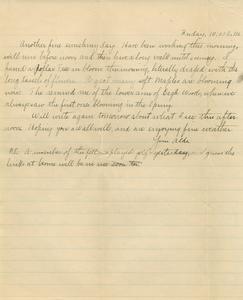 Friday, 10:30 A.M.
Another fine sunshiny day. Have been working this morning,
will rive before noon and then have a long walk until evening. I
found a poplar tree in bloom this morning, literally draped with the
long tassels of flowers. A great many soft Maples are blooming
now. This reminds me of the lower arm of Eagle Woods, where we
always saw the first ones blooming in the Spring.
Will write again tomorrow about what I see this after-
noon. Hoping you all well, and are enjoying fine weather.
Your Aldo
P.S. A member of the played golf yesterday, so I guess the
links at home will be in use soon too.